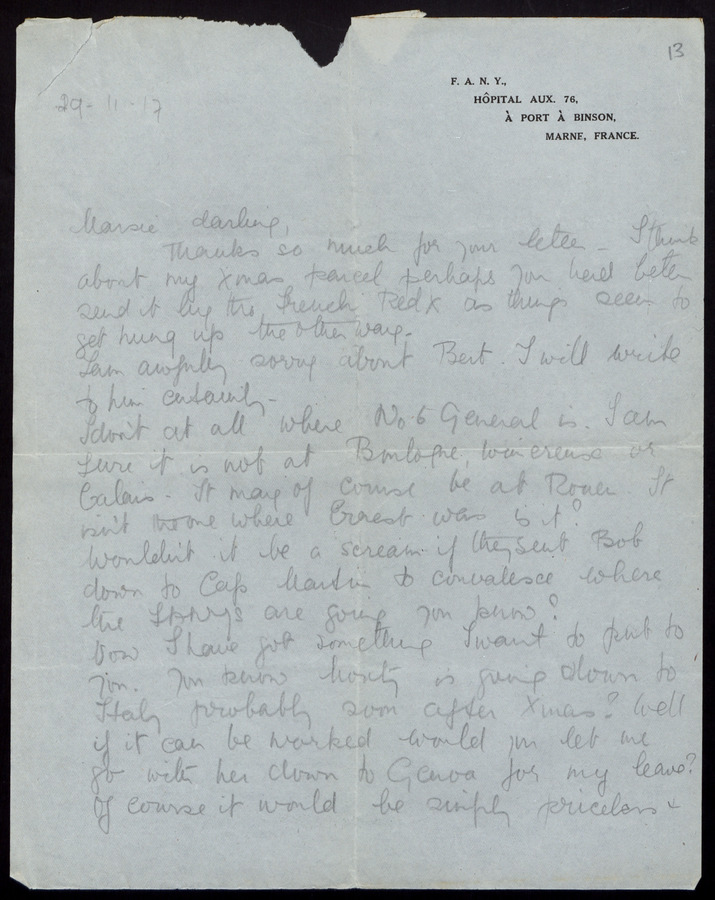 13
F. A. N. Y.,
HÔPITAL AUX. 76,
À PORT À BINSON,
MARNE, FRANCE.
29-11-17
darling,
Thanks so much for your letter - I think
about my Xmas parcel perhaps you had better
send it by the French Red X as things seem to
get hung up the other way.
I am awfully sorry about Bert. I will write
to him certainly -
I don't at all where No 6 General is. I am
sure it is not at Boulogne, Wimereux or
Calais - It may of course be at Rouen. It
isn't the one where Ernest was is it?
Wouldn't it be a scream if they sent Bob
down to Cap Martin to convalesce where
the FANYs are going you know?
Now I have got something I want to put to
you. You know is going down to
Italy probably soon after Xmas? Well
if it can be worked would you let me
go with her down to Genoa for my leave?
Of course it would be simply priceless &